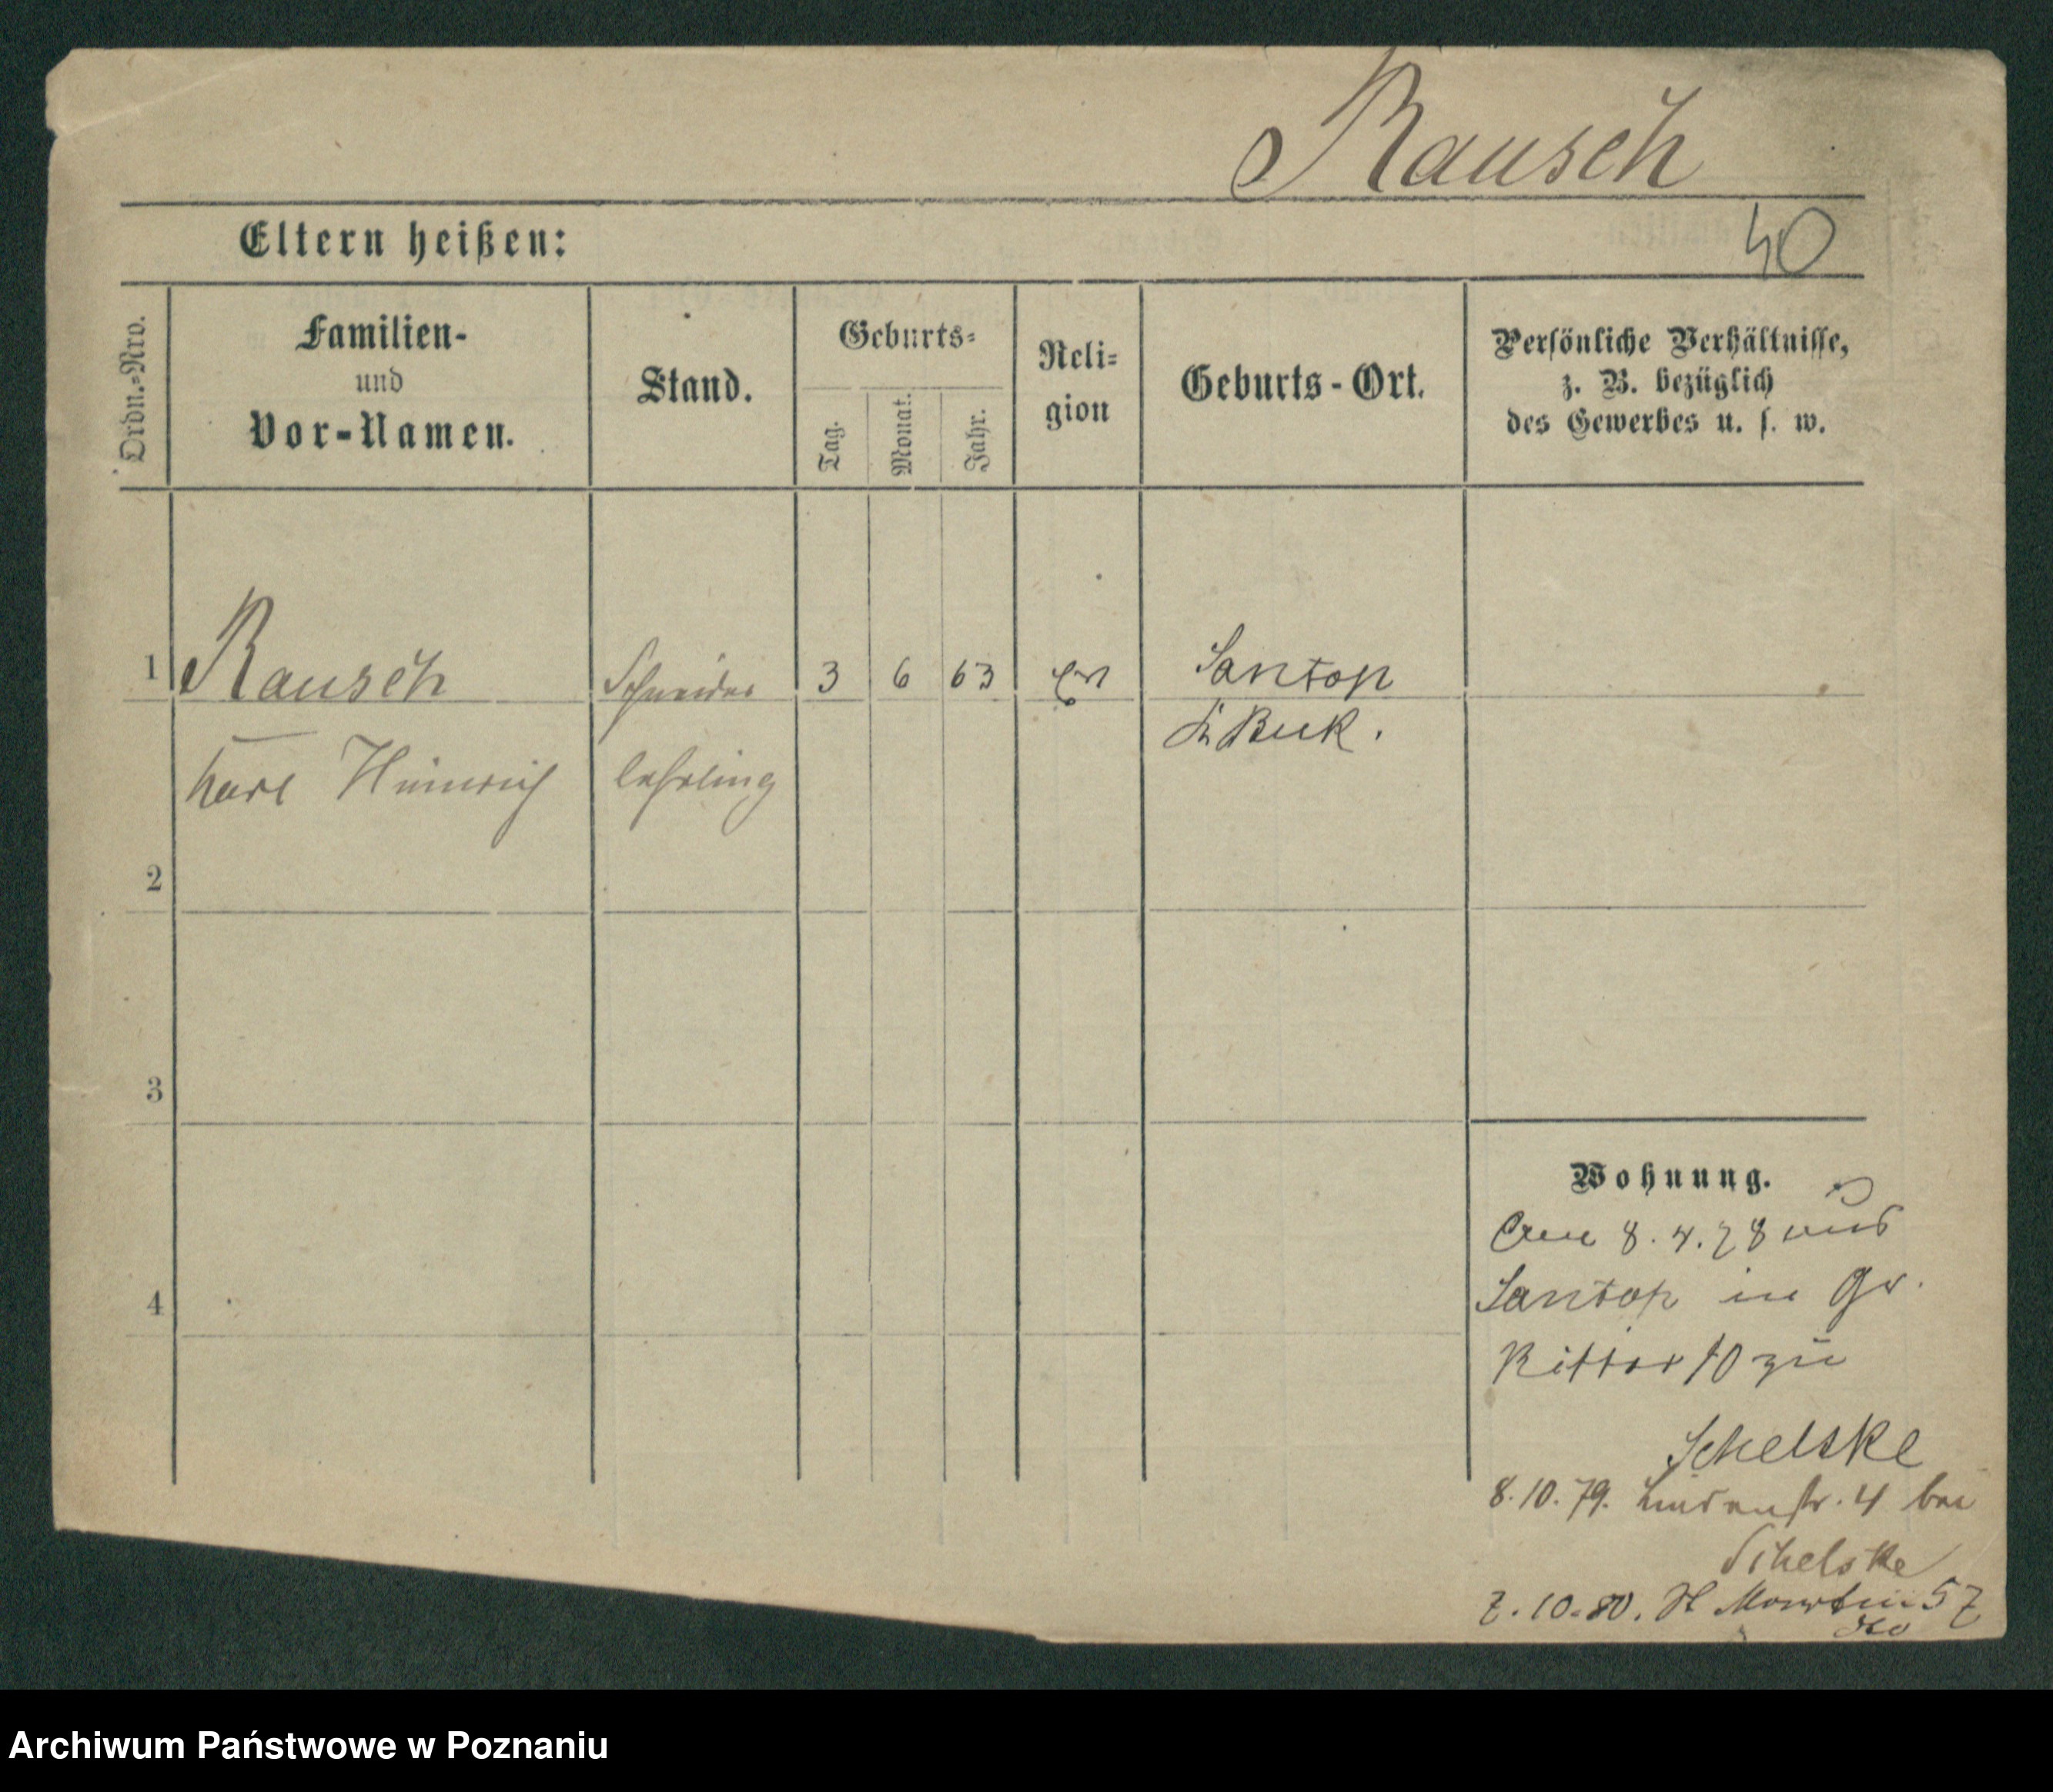 Rausch
40
Eltern heißen:
Ordn.-Nro.
Familien-
und
Vor-Namen.
Stand.
Geburts-
Tag.
Monat.
Jahr.
Reli-
gion
Geburts-Ort.
Persönliche Verhältnisse,
z. B. bezüglich
des Gewerbes u. s. w.
1
Rausch
Schneider
3
6
63
Ev
Santop
Kr Buk.
Karl Heinrich
lehrling
2
3
4
Wohnung.
Am 8. 4. 78 aus
Santop in Gr.
Ritter 10 zu
Schelske
8. 10. 79. Lindenstr. 4 bei
Schelske
7. 10. 80. St Martin 57